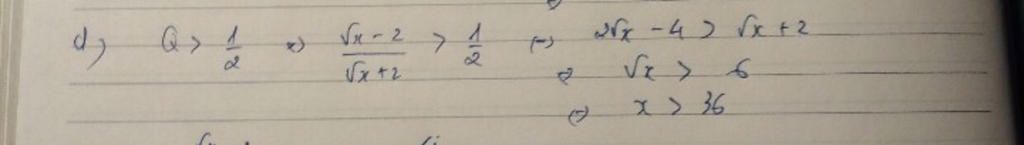 d) Q > 1/2 ⇔ (√x - 2)/(√x + 2) > 1/2 ⇔ 2√x - 4 > √x + 2
⇔ √x > 6
⇔ x > 36